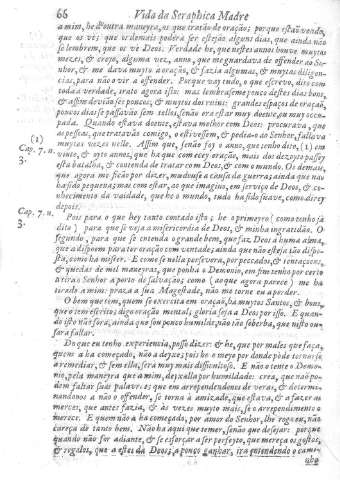 66 Vida da Seraphica Madre
a mim, he d'outra maneyra, os que tratão de oração; porque estaõ vendo,
que os vè: que os demais poderà ser estejão alguns dias, que ainda não
se lembrem, que os vè Deos. Verdade he, que nestes annos houve muytos
mezes, & creyo, alguma vez, anno, que me guardava de offender ao Se-
nhor, & me dava muyto a oração, & fazia algumas, & muytas diligen-
cias, para não vir a offender. Porque vay tudo, o que escrevo, dito com
toda a verdade, trato agora isto: mas lembrase me pouco destes dias bons,
& assim devião ser poucos; & muytos dos ruins: grandes espaços de oração,
poucos dias se passavão sem tellos, senão era estar muy doente, ou muy occu-
pada. Quando estava doente, estava melhor com Deos: procurava, que
as pessoas, que tratavão comigo, o estivessem, & pedia-o ao Senhor, fallava
muytas vezes nelle. Assim que, senão foy o anno, que tenho dito, (1) em
vinte, & oyto annos, que ha que comecey oração, mais dos dezoyto passey
esta batalha, & contenda de tratar com Deos, & com o mundo. Os demais,
que agora me ficão por dizer, mudouse a causa da guerra; ainda que não
ha sido pequena; mas com estar, ao que imagino, em serviço de Deos, & co-
nhecimento da vaidade, que he o mundo, tudo ha sido suave, como direy
depois.
(1)
Cap. 7. n.
3.
Pois para o que hey tanto contado isto; he o primeyro (como tenho jà
dito) para que se veja a misericordia de Deos, & minha ingratidão. O
Cap. 7. n.
3.
segundo, para que se entenda o grande bem, que faz Deos à huma alma,
que a dispoem para ter oração com vontade; ainda que não esteja tão dispos-
ta, como ha mister. E como se nella persevera, por peccados, & tentaçoens,
& quedas de mil maneyras, que ponha o Demonio, em fim tenho por certo
a tira o Senhor a porto de salvação; como (aoque agora parece) me ha
tirado a mim: praça a sua Magestade, não me torne eu a perder.
O bem que tem, quem se exercita em oração, ha muytos Santos, & bons,
que o tem escrito; digo oração mental; gloria seja a Deos por isso. E quan-
do isto não fora, ainda que sou pouco humilde, não tão soberba, que nisto ou-
sara fallar.
Do que eu tenho experiencia, posso dizer: & he, que por males que faça,
quem a ha começado, não a deyxe; pois he o meyo por donde pòde tornarse
a remediar, & sem ella, serà muy mais difficultoso. E não o tente o Demo-
nio, pela maneyra que a mim, deixalla por humildade: crea, que não po-
dem faltar suas palavras: que em arrependendonos de veras, & determi-
nandonos a não o offender, se torna à amizade, que estava, & a fazer as
merces, que antes fazia, & às vezes muyto mais, se o arrependimento o
merece. E quem não a ha começado, por amor do Senhor, lhe rogo eu, não
careça de tanto bem. Não ha aqui que temer, senão que desejar: porque
quando não for adiante, & se esforçar a ser perfeyto, que mereça os gostos,
& regalos, que a estes dà Deos; a pouco ganhar, irà entendendo o cami-